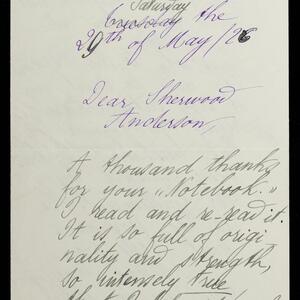 Saturday
Tuesday the
29th of May/26
Dear Sherwood
Anderson,
A thousand thanks
for your „Notebook."
I read and re-read it.
It is so full of origi
nality and strength,
so intensely true